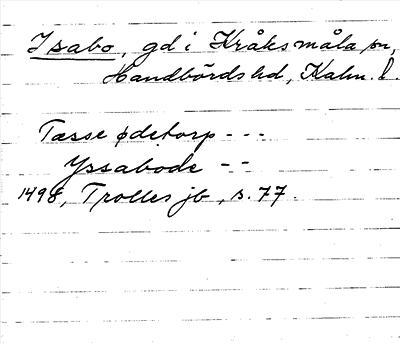 Isabo, gd i Kråksmåla sn,
Handbörds hd, Kalm. l.
Tasse ødetorp - - -
Yssabode - -
1498, Trolles jb, s. 77.